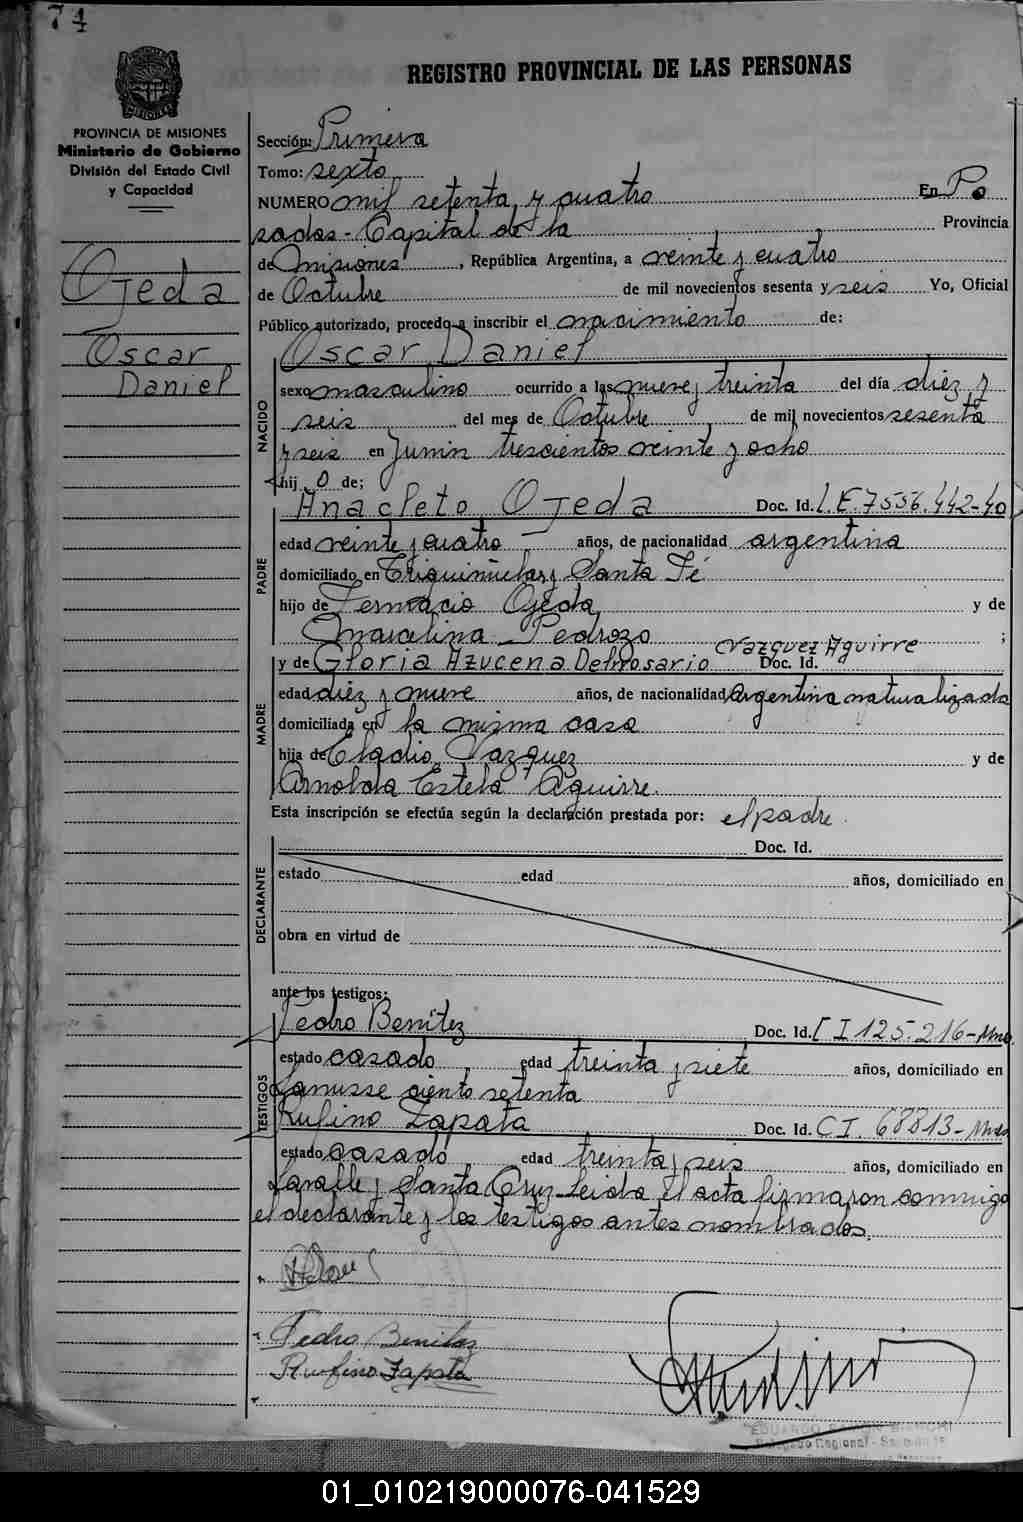 74
REGISTRO PROVINCIAL DE LAS PERSONAS
PROVINCIA DE MISIONES
Ministerio de Gobierno
División del Estado Civil
y Capacidad
Ojeda
Oscar
Daniel
Sección: Primera
Tomo: sexto
NUMERO mil setenta y cuatro En Po
sadas - Capital de la Provincia
de Misiones, República Argentina, a veinte y cuatro
de Octubre de mil novecientos sesenta y seis Yo, Oficial
Público autorizado, procedo a inscribir el nacimiento de:
Oscar Daniel
NACIDO
sexo masculino ocurrido a las nueve y treinta del día diez y
seis del mes de Octubre de mil novecientos sesenta
y seis en Junin trescientos veinte y ocho
hijo de;
Anacleto Ojeda Doc. Id. L.E. 7556.442-40
PADRE
edad veinte y cuatro años, de nacionalidad argentina
domiciliado en y Santa Fé
hijo de Ojeda y de
Marcelina Pedrozo ;
y de Gloria Azucena Delrrosario Vazquez Aguirre Doc. Id.
MADRE
edad diez y nueve años, de nacionalidad Argentina naturalizada
domiciliada en la misma casa
hija de Eladio Vazquez y de
Arnolda Estela Aguirre.
Esta inscripción se efectúa según la declaración prestada por: el padre.
Doc. Id.
DECLARANTE
estado edad años, domiciliado en
obra en virtud de
ante los testigos:
Pedro Benítez Doc. Id. C I 125.216-Mnes
TESTIGOS
estado casado edad treinta y siete años, domiciliado en
Lanusse ciento setenta
Rufino Zapata Doc. Id. C I. 68813-Mnes
estado casado edad treinta y seis años, domiciliado en
Lavalle y Santa Cruz-Leida el acta firmaron conmigo
el declarante y los testigos antes nombrados.
Pedro Benitez
Rufino Zapata
EDUARDO RAMON BIANCHI
Delegado Regional - Sección 1ª
01_010219000076-041529